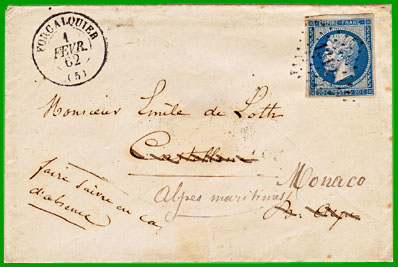 FORCALQUIER
1
FEVR.
62
(5)
EMPIRE FRANC.
20 C. POSTES 20 C.
Monsieur Emile de Loth
Castellane
Monaco
Alpes maritimes
B. Alp
faire suivre en cas
d'absence